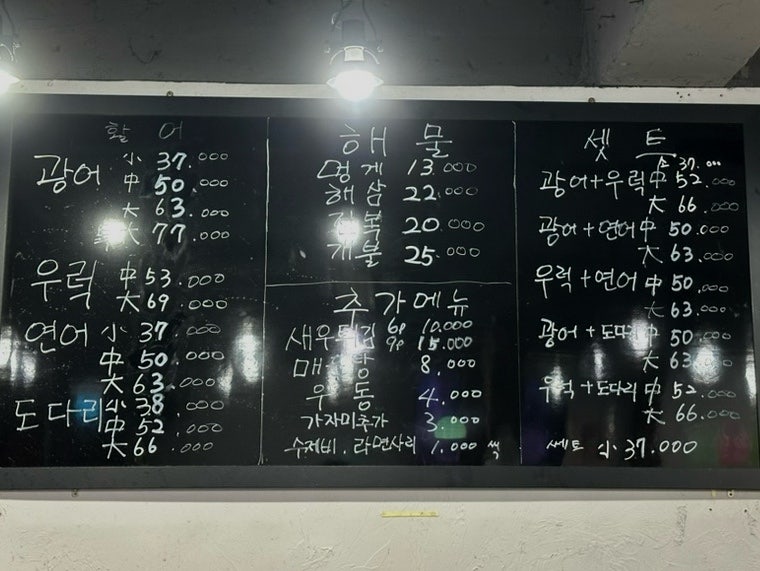 활어
광어 小 37.000
中 50.000
大 63.000
大 77.000
우럭 中 53.000
大 69.000
연어 小 37.000
中 50.000
大 63.000
도다리 小 38.000
中 52.000
大 66.000
해물
멍게 13.000
해삼 22.000
전복 20.000
개불 25.000
추가메뉴
새우튀김 6p 10.000
9p 15.000
매 탕 8.000
우동 4.000
가자미추가 3.000
수제비.라면사리 1.000 씩
셋트
소 37.000
광어+우럭 中 52.000
大 66.000
광어+연어 中 50.000
大 63.000
우럭+연어 中 50.000
大 63.000
광어+도다리 中 50.000
大 63.000
우럭+도다리 中 52.000
大 66.000
쎄트 小 37.000